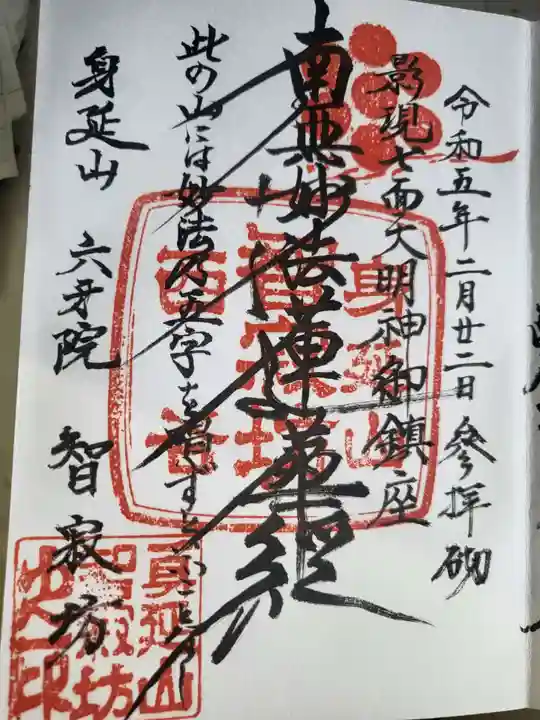 令和五年二月廿二日 參拝砌
影現七面大明神御鎮座
南無妙法蓮華経
此の山には妙法乃五字を唱へずと云ことなし
身延山 六牙院 智寂坊
身延山
智寂坊
身延山
智寂坊